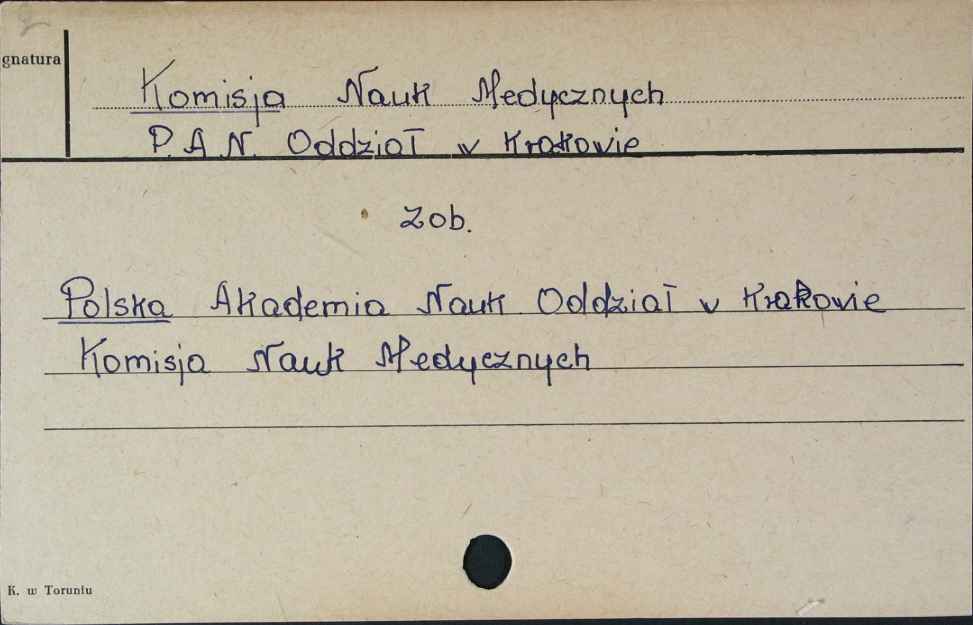 gnatura
Komisja Nauk Medycznych
P.A.N. Oddział w Krakowie
Zob.
Polska Akademia Nauk Oddział w Krakowie
Komisja Nauk Medycznych
K. w Toruniu